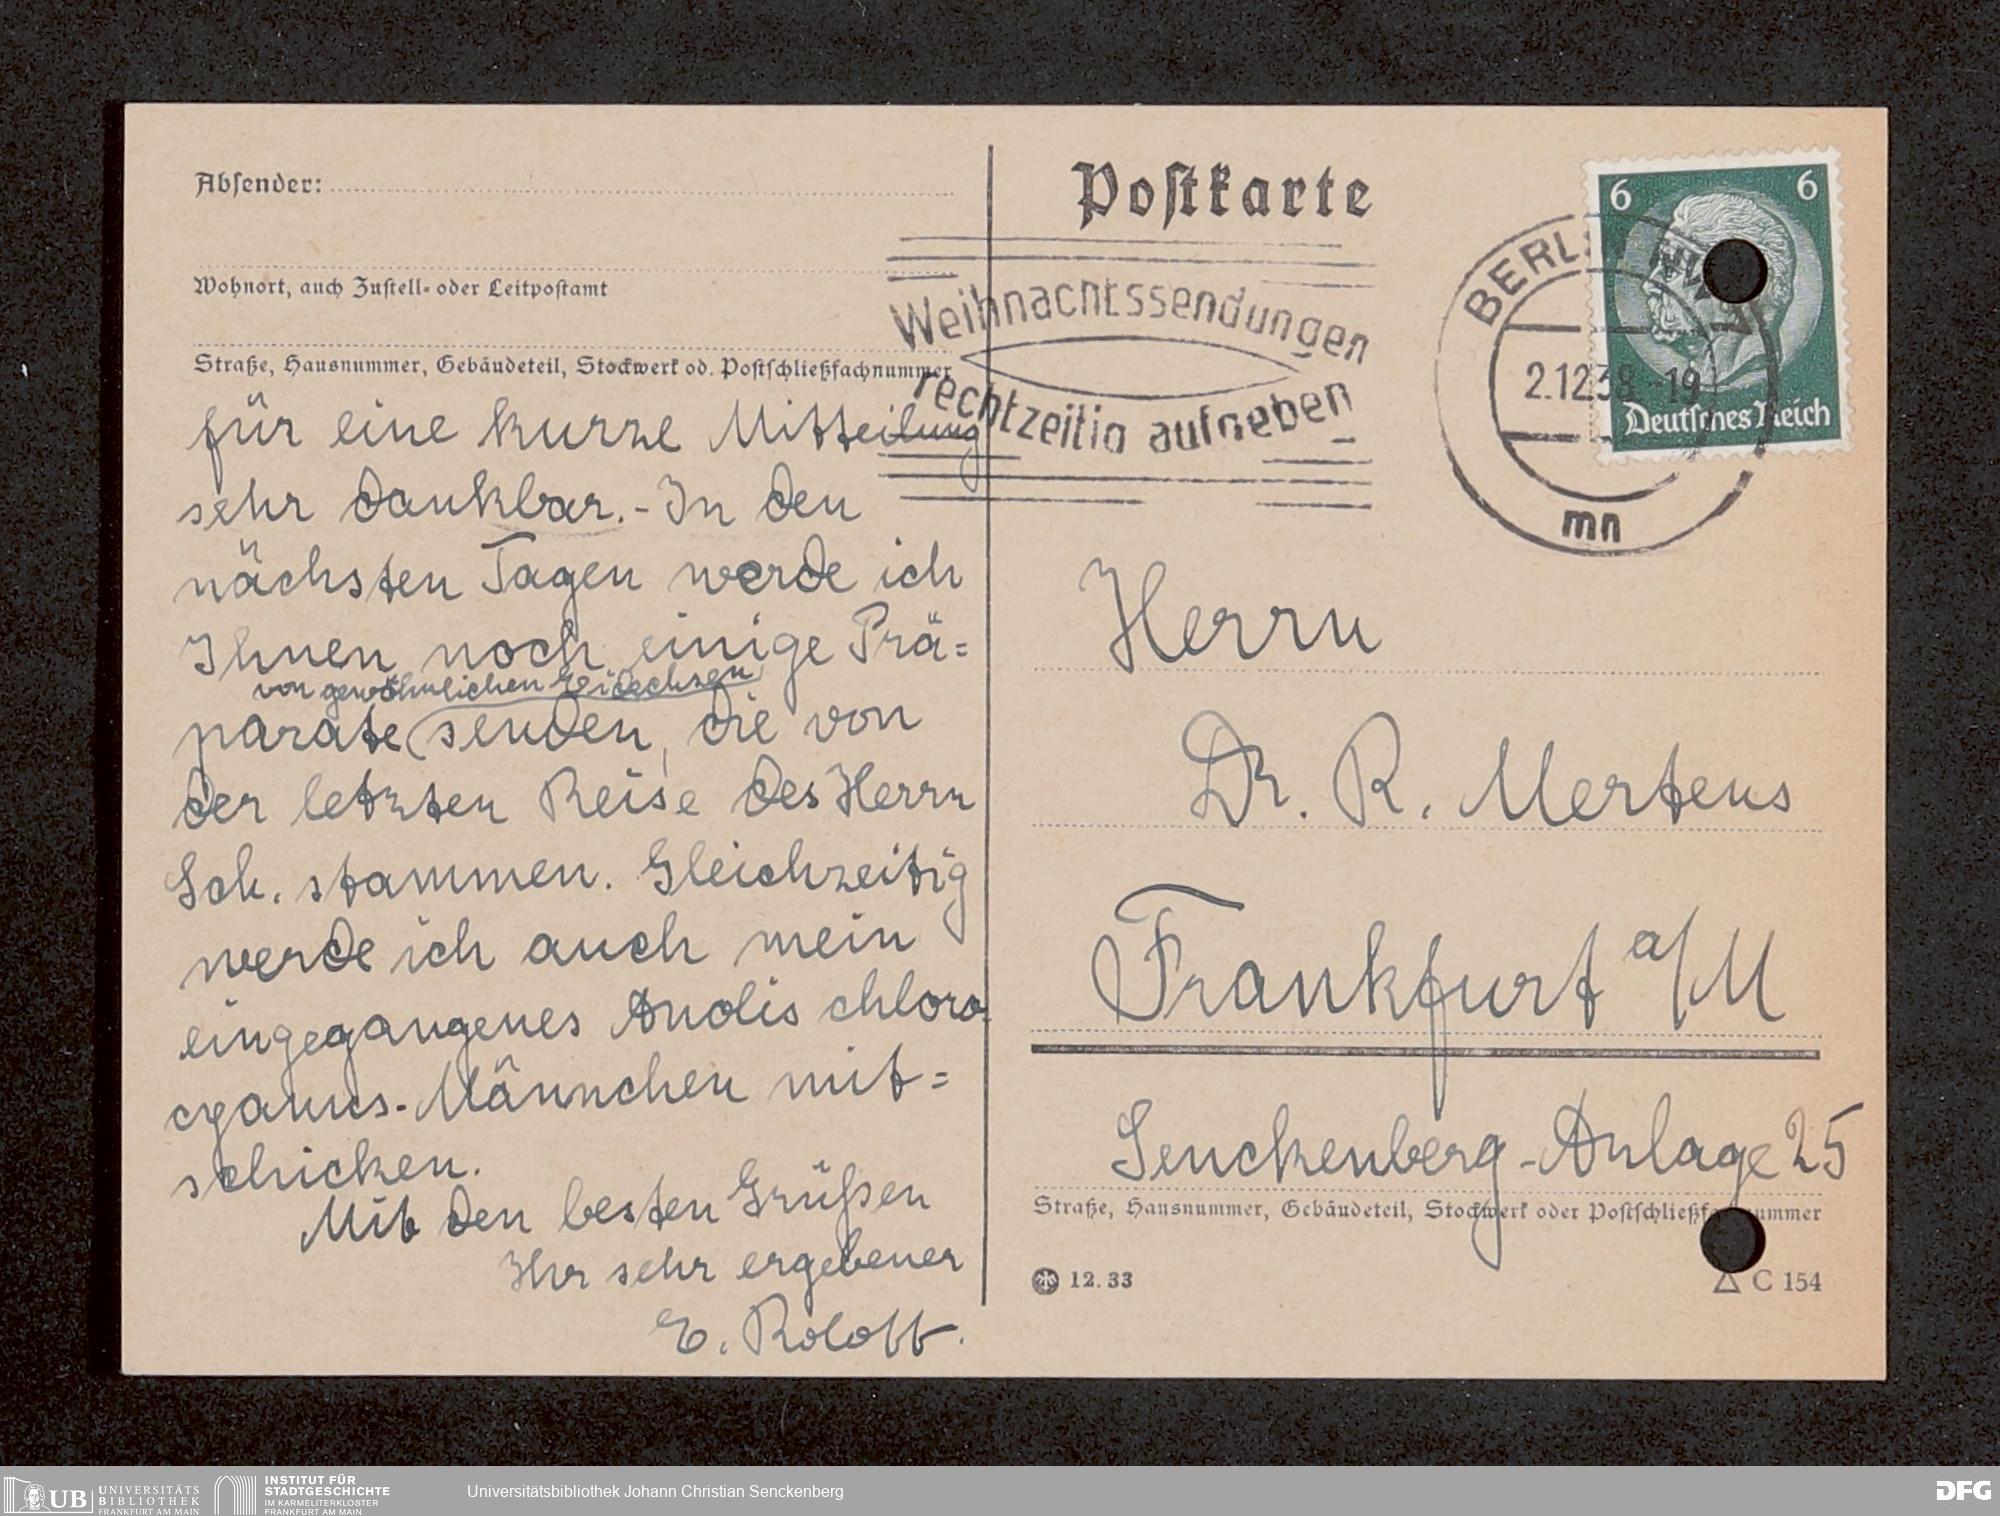 Absender:
Wohnort, auch Zustell- oder Leitpostamt
Straße, Hausnummer, Gebäudeteil, Stockwerk od. Postschließfachnummer
für eine kurze Mitteilung
sehr dankbar. - In den
nächsten Tagen werde ich
Ihnen noch einige Prä=
von gewöhnlichen Eidechsen
parate senden, die von
der letzten Reise des Herrn
Sch. stammen. Gleichzeitig
werde ich auch mein
eingegangenes Anolis chloro-
cyanus-Männchen mit=
schicken.
Mit den besten Grüßen
Ihr sehr ergebener
E. Roloff.
Postkarte
Weihnachtssendungen
rechtzeitig aufgeben
BERLIN NW
2.12.38.-19
mn
6 6
Deutsches Reich
Herrn
Dr. R. Mertens
Frankfurt a/M
Senckenberg-Anlage 25
Straße, Hausnummer, Gebäudeteil, Stockwerk oder Postschließfachnummer
12.33
C 154
UB UNIVERSITÄTS
BIBLIOTHEK
FRANKFURT AM MAIN
INSTITUT FÜR
STADTGESCHICHTE
IM KARMELITERKLOSTER
FRANKFURT AM MAIN
Universitätsbibliothek Johann Christian Senckenberg
DFG